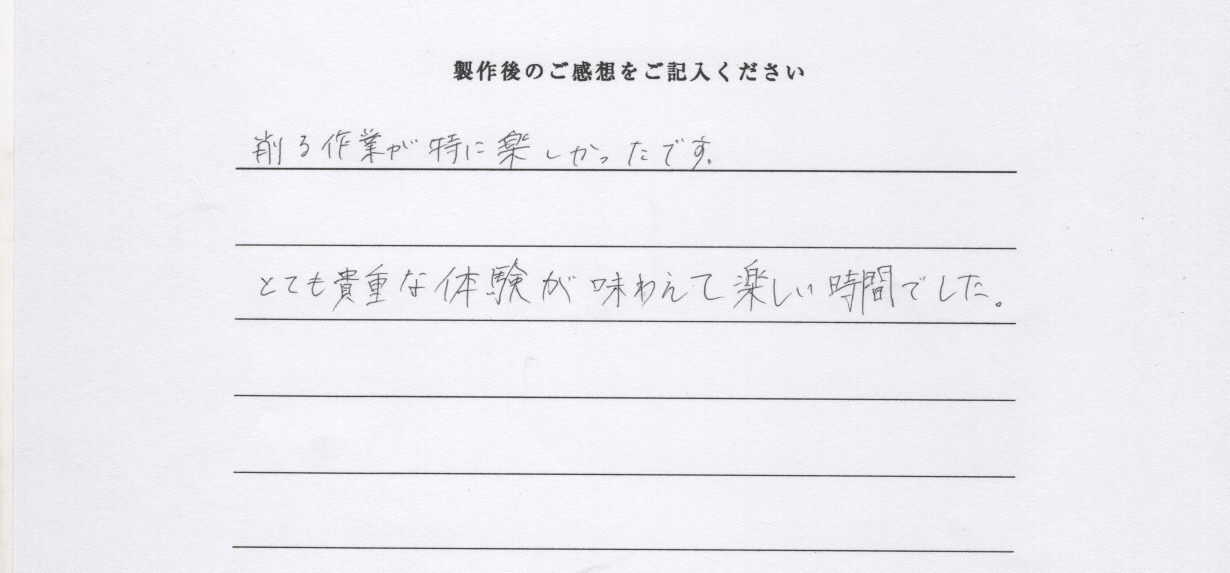 製作後のご感想をご記入ください
削る作業が特に楽しかったです。
とても貴重な体験が味わえて楽しい時間でした。